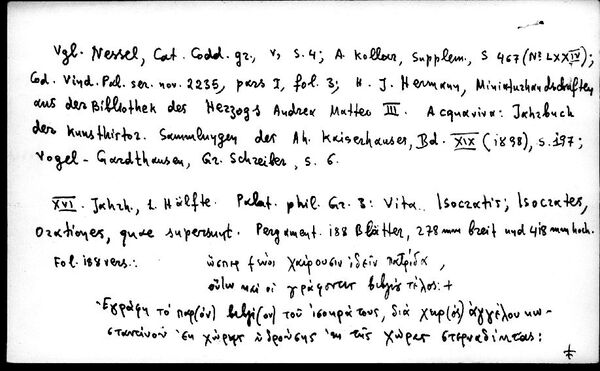 Vgl. Nessel, Cat. Codd. gr., V, S. 4; A. Kollar, Supplem., S 467 (No LXXIV);
Cod. Vind. Pal. ser. nov. 2235, pars I, fol. 3; H. J. Hermann, Miniaturhandschriften
aus der Bibliothek des Herzogs Andrea Matteo III. Acquaviva: Jahrbuch
der Kunsthistor. Sammlungen des Ah. Kaiserhauses, Bd. XIX (1898), S. 197;
Vogel-Gardthausen, Gr. Schreiber, S. 6.
XVI. Jahrh., 1. Hälfte. Palat. phil. Gr. 3: Vita Isocratis; Isocrates,
Orationes, quae supersunt. Pergament. 188 Blätter, 278 mm breit und 418 mm hoch.
Fol. 188 vers.: ὥσπερ ξένοι χαίρουσιν ἰδεῖν πατρίδα,
οὕτω καὶ οἱ γράφοντες βιβλίου τέλος: +
Ἐγράφη τὸ παρ(ὸν) βιβλί(ον) τοῦ ἰσοκράτους, διὰ χειρ(ὸς) ἀγγέλου κων-
σταντίνου ἐκ χώρης ὑδρούσης ἐκ τῆς χώρας στερναδίντας: